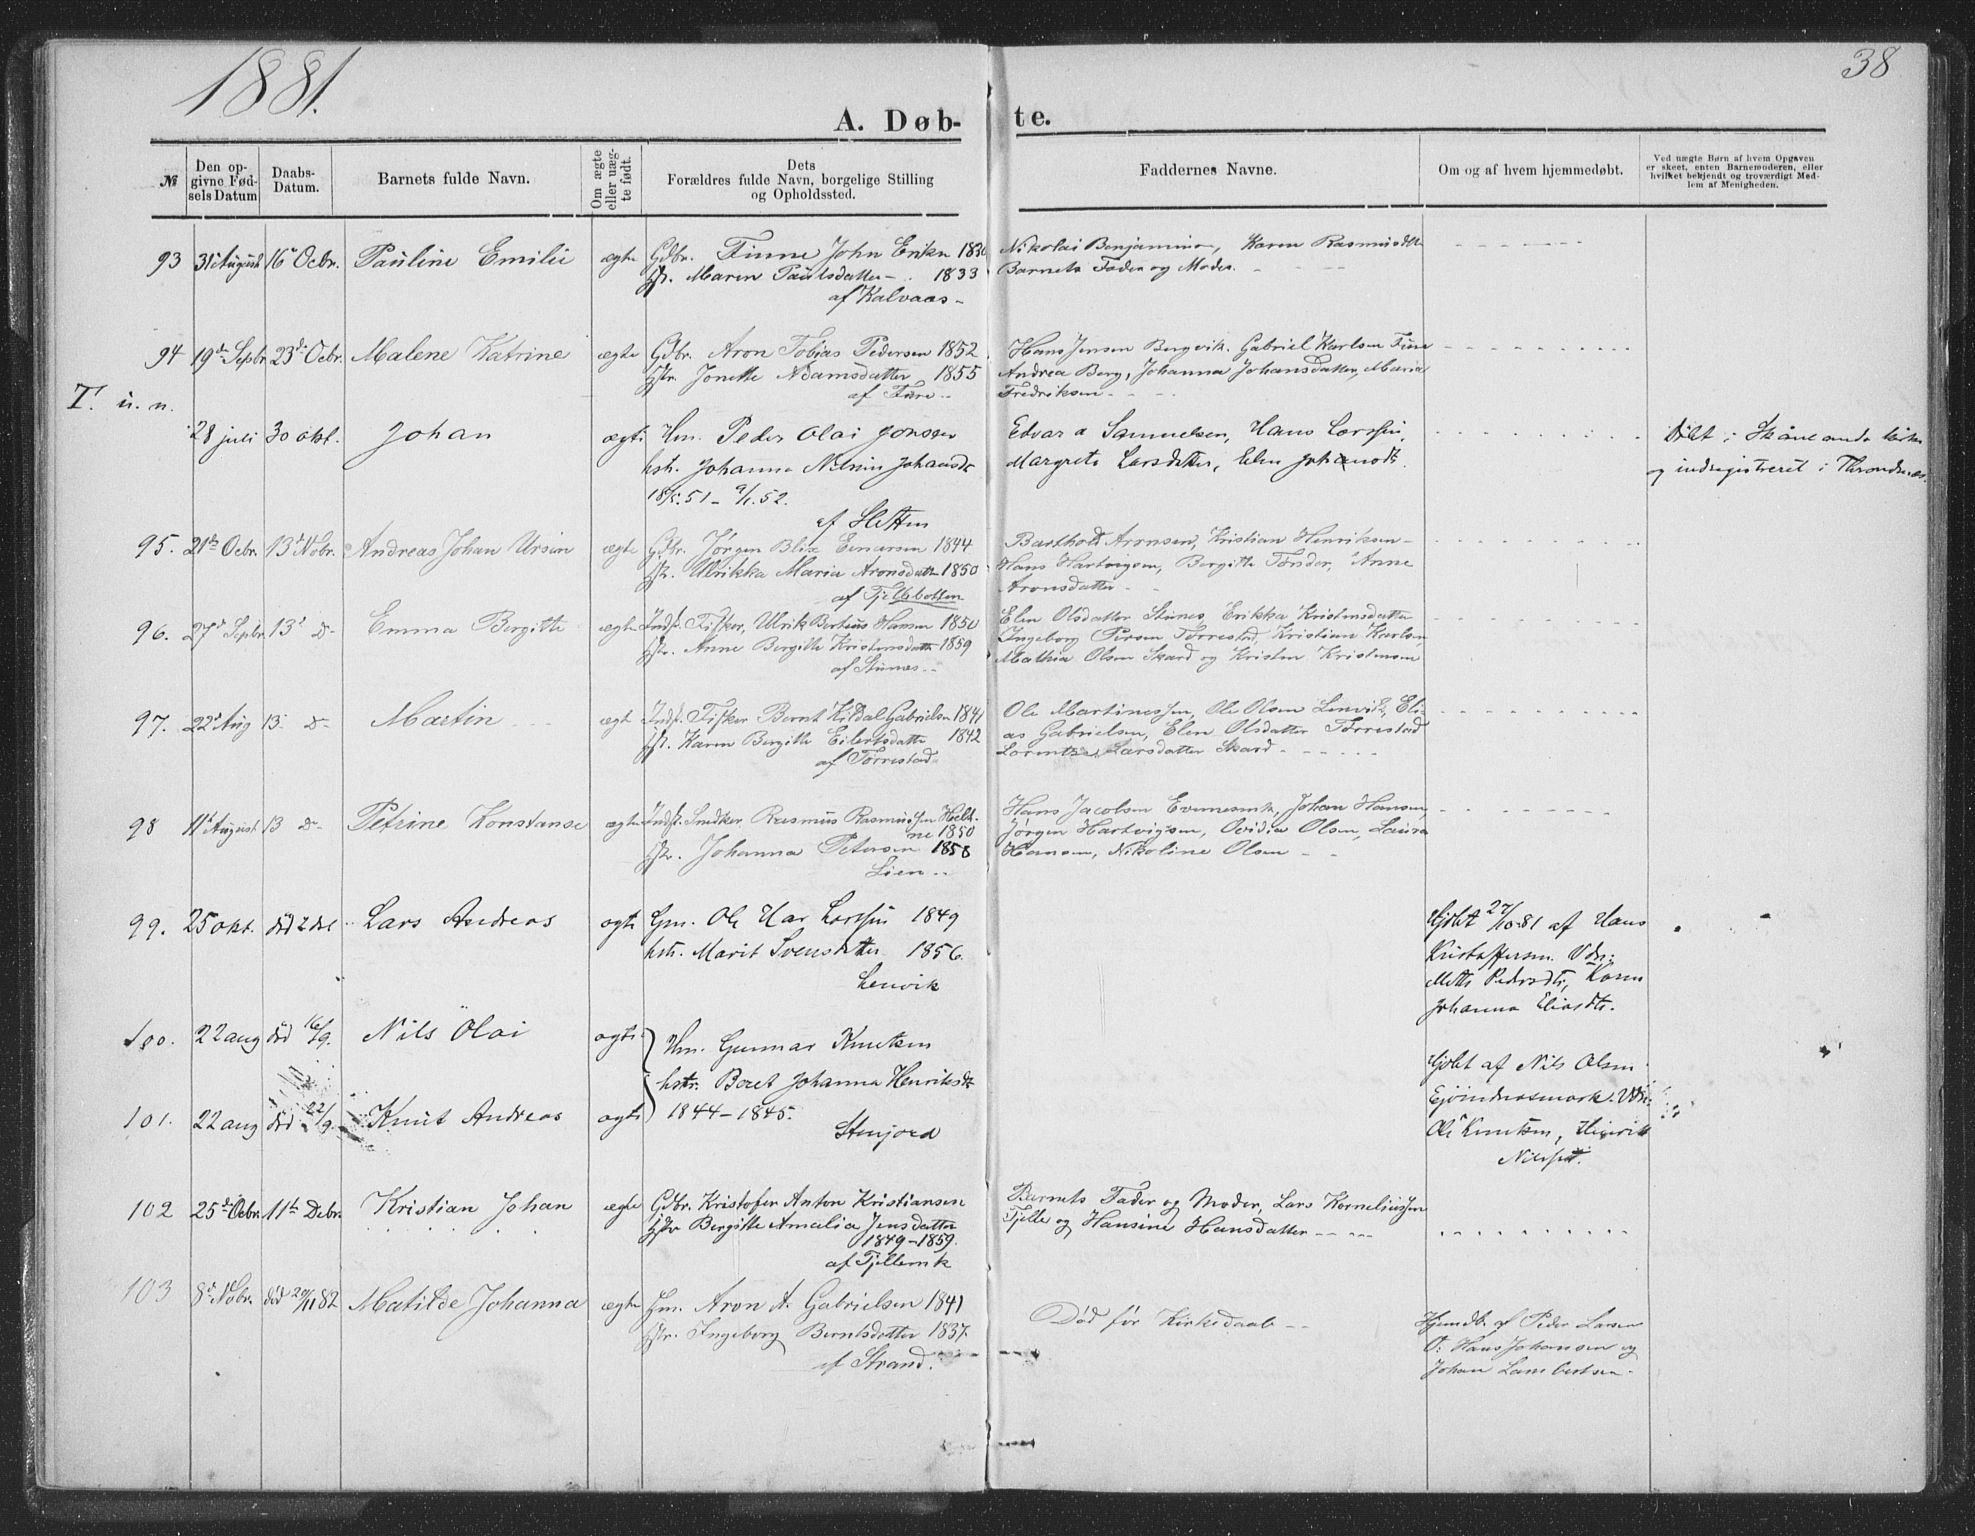 1881.
38
A. Døb-
te.
№
Den op-
givne Fød-
sels Datum
Daabs-
Datum.
Barnets fulde Navn.
Om ægte
eller uæg-
te født.
Dets
Forældres fulde Navn, borgelige Stilling
og Opholdssted.
Faddernes Navne.
Om og af hvem hjemmedøbt.
Ved uægte Børn af hvem Opgaven
er skeet, enten Barnemoderen, eller
hvilket bekjendt og troværdigt Med-
lem af Menigheden.
93 31 August 16 Octbr. Pauline Emilie ægte
Gdbr. Finne John Eriksn
Hstr. Maren Paulsdatter 1833
af Kalvaas
Nikolai Benjaminsn, Karen Rasmusdtr
Barnets Fader og Moder.
94 19de Septbr 23de Octbr. Malene Katrine ægte
Gdbr. Aron Tobias Pedersen 1852
Hstr. Jonette Adamsdatter 1855
af Fure
Hans Jensen Bergvik. Gabriel Karlsen Fure
Andrea Berg, Johanna Johansdatter, Maria
Fredriksen
T. u. n.
28 juli 30 okt. Johan ægte
Hm. Peder Olai Jonsen
hstr. Johanna Nilsin Johansdr
18/5.51 - 9/1.52.
af Sletten
Edvard Samuelsen, Hans Larssen,
Margrete Larsdatter, Elen Johansdt.
Døbt i Skånlands kirke
og indregistreret i Throndenes.
95. 21de Octbr. 13de Novbr. Andreas Johan Ursin ægte
Gdbr. Jørgen Blix Enarsen 1844
Hstr. Ulrikka Maria Aronsdattr 1850
af Fjeldbotten
Barthold Aronsen, Kristian Henriksen
Hans Hartvigsen, Bergitte Tønder, Anne
Aronsdatter
96. 27de Septbr. 13de D- Emma Bergitte ægte
Indst. Fisker, Ulrik Bertius Hansen 1850
Hstr. Anne Bergitte Kristensdattr 1859
af Stunes
Elen Olsdatter Stunes, Erikka Kristensdatter
Ingeborg Persen Tørrestad, Kristian Karlsen
Mathia Olsen Skard og Kristen Kristensen
97. 22de Aug 13 D- Martin ægte
Indst. Fisker Bernt Kildal Gabrielsen 1841
Hstr. Karen Bergitte Eilertsdatter 1842
af Tørrestad
Ole Martinessen, Ole Olsen Lenvik, Eli-
as Gabrielsen, Elen Olsdatter Tørrestad
Lorentze Larsdatter Skard
98 11te August 13 D- Petrine Konstanse ægte
Indst. Snedker, Rasmus Rasmussen
1850
Hstr. Johanna Petersen 1858
Lien
Hans Jacobsen Evenesmrk, Johan Hansen,
Jørgen Hartvigsen, Ovidia Olsen, Laura
Hansen, Nikoline Olsen
99. 25 okt. død 2 Lars Andreas ægte
Gm. Ole Har Larssen 1849
hstr. Marit Svensdatter 1856.
Lenvik
Hjdbt 27/10-81 af Hans
Kristoffersen. Vdn:
Mette Pedersdtr, Karen
Johanna Eliasdtr.
100. 22 aug død 16/9. Nils Olai ægte
Hm. Gunnar Knutsen
hstr. Beret Johanna Henriksdr
1844 - 1845.
Stenjord
Hjdbt af Nils Olsen
101. 22 aug død 22/9. Knut Andreas ægte
Ole Knutsen, Henrik
Nilssen.
102 25de Octbr. 11te Debr. Kristian Johan ægte
Gdbr. Kristofer Anton Kristiansen
Hstr Bergitte Amalia Jensdatter
1849-1859.
af Fjellemrk
Barnets Fader og Moder, Lars Korneliussen
Fjelle og Hansine Hansdatter
103 8de Novbr. død 20/11 82 Matilde Johanna ægte
Hm. Aron A. Gabrielsen 1841
Hstr. Ingeborg Berntsdatter 1837.
af Strand.
Død før Kirkedaab
Hjemdb. af Peder Larsen
V: Hans Johansen og
Johan Lambertsen